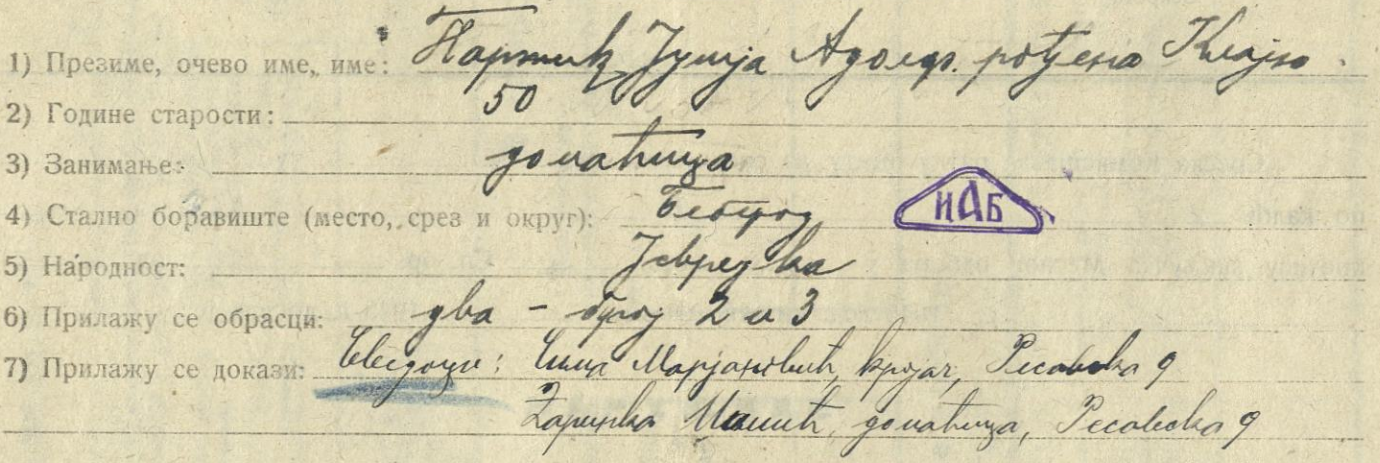 1) Презиме, очево име, име: Јулија Адолф. рођена Клајн
2) Године старости: 50
3) Занимање: домаћица
4) Стално боравиште (место, срез и округ): Београд
ИАБ
5) Народност: Јеврејка
6) Прилажу се обрасци: два - број 2 и 3
7) Прилажу се докази: Сведоци: Марјановић, кројач, Ресавска 9
домаћица, Ресавска 9